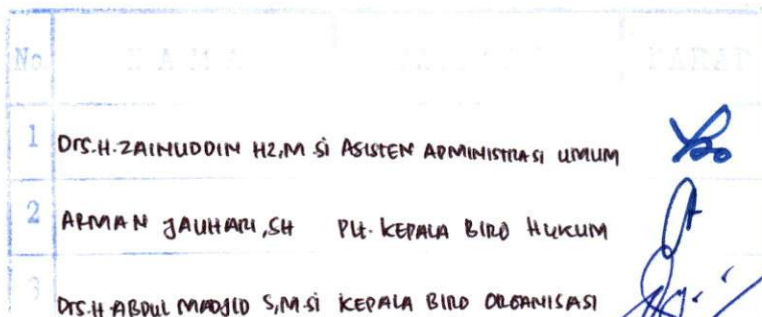 No NAMA PARAF
1 Drs.H.ZAINUDDIN HZ,M.Si ASISTEN ADMINISTRASI UMUM
2 ARMAN JAUHARI,SH Plt. KEPALA BIRO HUKUM
3 Drs.H ABDUL MADJID S,M.Si KEPALA BIRO ORGANISASI